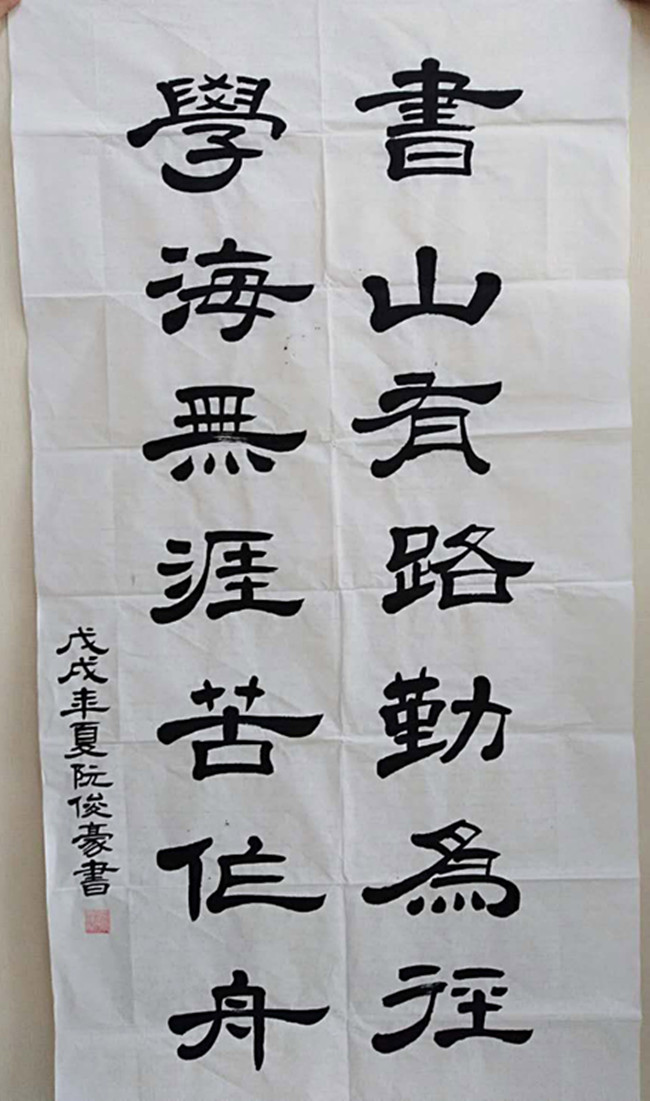 書山有路勤為徑
學海無涯苦作舟
戊戌年夏阮俊豪書